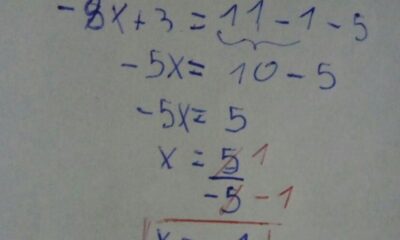 -8x+3=11-1-5
-5x=10-5
-5x=5
x=5 1
-5 -1